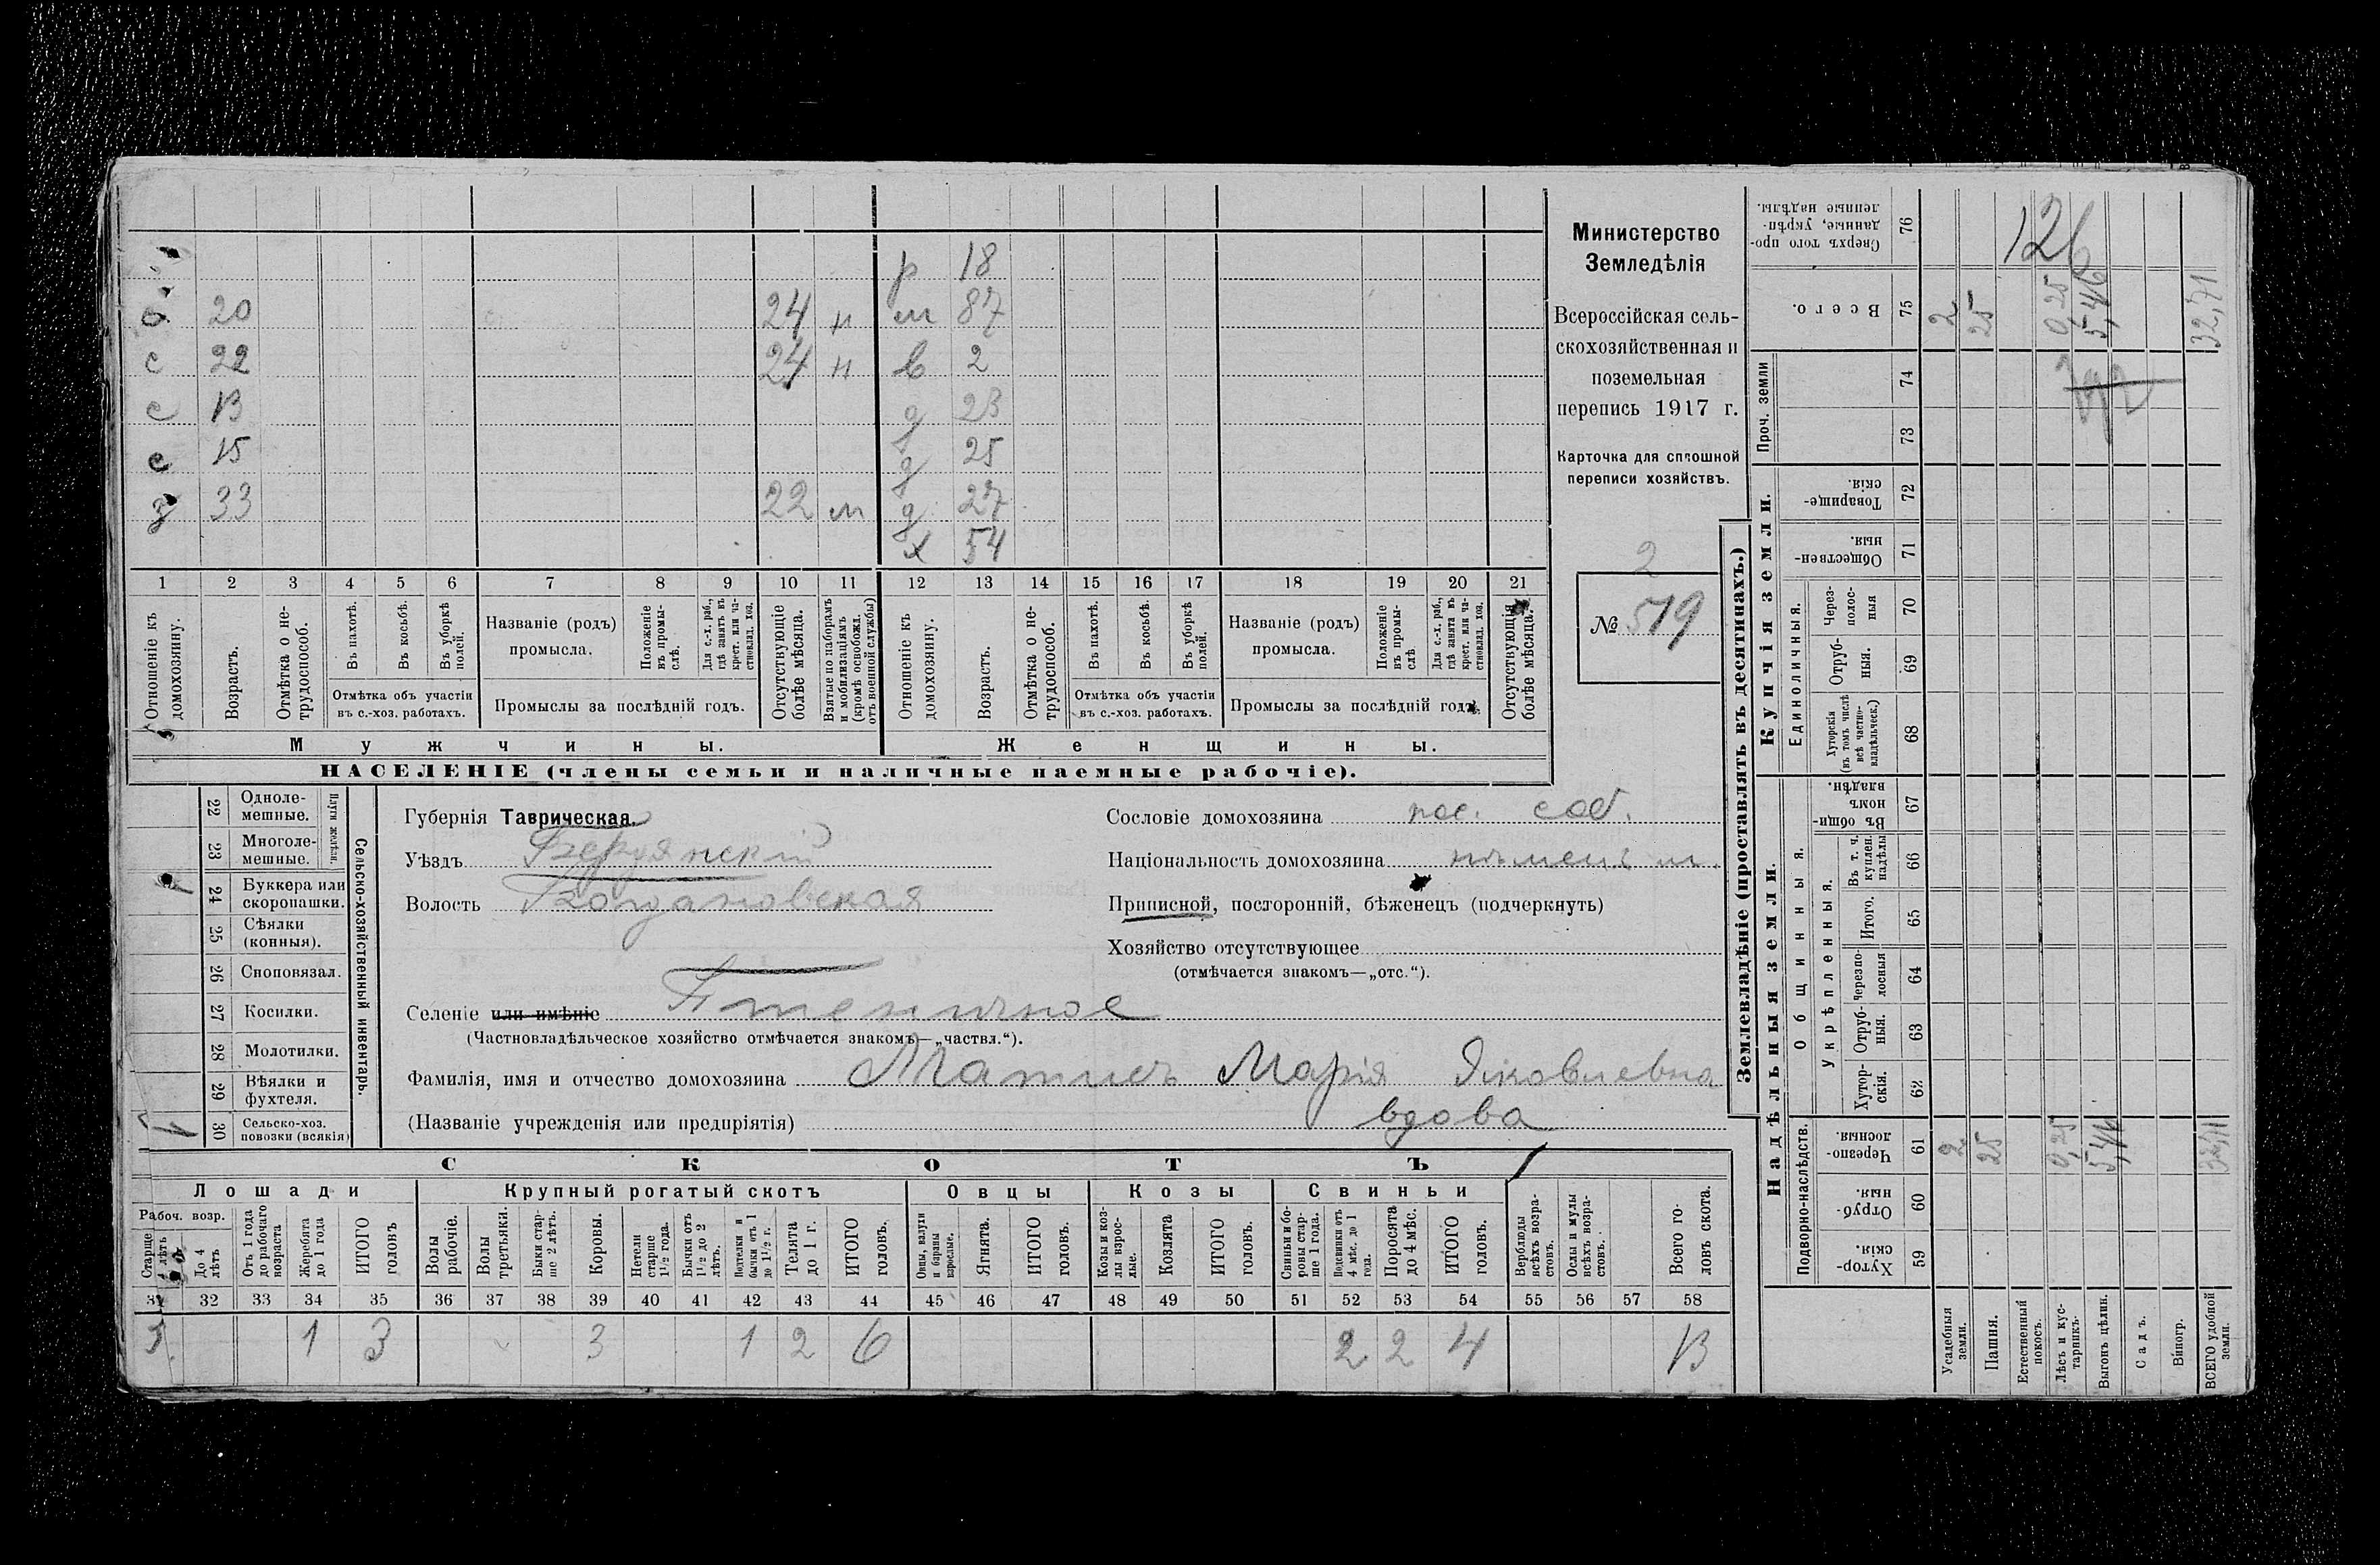 р 18
с 20 24 н м 87
с 22 24 н в 2
с 13 д 23
с 15 д 25
з 33 22 м д 27
х 54
1 2 3 4 5 6 7 8 9 10 11 12 13 14 15 16 17 18 19 20 21
Отношеніе къ домохозяину.
Возрастъ.
Отмѣтка о не-трудоспособ.
Въ пахотѣ.
Въ косьбѣ.
Въ уборкѣ полей.
Отмѣтка объ участіи въ с.-хоз. работахъ.
Названіе (родъ) промысла.
Положеніе въ промы-слѣ.
Для с.-х. раб., гдѣ занятъ въ крест. или ча-стновлад. хоз.
Промыслы за послѣдній годъ.
Отсутствующіе болѣе мѣсяца.
Взятые по наборамъ и мобилизаціямъ (кромѣ освобожд. отъ военной службы)
Отношеніе къ домохозяину.
Возрастъ.
Отмѣтка о не-трудоспособ.
Въ пахотѣ.
Въ косьбѣ.
Въ уборкѣ полей.
Отмѣтка объ участіи въ с.-хоз. работахъ.
Названіе (родъ) промысла.
Положеніе въ промы-слѣ
Для с.-х. раб., гдѣ занята въ крест. или ча-стновлад. хоз.
Промыслы за послѣдній годъ.
Отсутствующія болѣе мѣсяца.
Мужчины.
Женщины.
НАСЕЛЕНІЕ (члены семьи и наличные наемные рабочіе).
Министерство
Земледѣлія
Всероссійская сель-
скохозяйственная и
поземельная
перепись 1917 г.
Карточка для сплошной
переписи хозяйствъ.
2
№ 519
22 Одноле-мешные.
23 Многоле-мешные.
Плуги желѣзн.
24 Буккера или скоропашки.
25 Сѣялки (конныя).
26 Сноповязал.
27 Косилки.
28 Молотилки.
29 Вѣялки и фухтеля.
30 Сельско-хоз. повозки (всякія)
Сельско-хозяйственный инвентарь.
Губернія Таврическая.
Уѣздъ Бердянскій
Волость Богдановская
Селеніе или имѣніе
(Частновладѣльческое хозяйство отмѣчается знакомъ—„частвл.“).
Фамилія, имя и отчество домохозяина Матисъ Марія Яковлевна
(Названіе учрежденія или предпріятія) вдова
Сословіе домохозяина пос. соб.
Національность домохозяина нѣмецъ м.
Приписной, посторонній, бѣженецъ (подчеркнуть)
Хозяйство отсутствующее
(отмѣчается знакомъ—„отс.“).
СКОТЪ
Лошади
Крупный рогатый скотъ
Овцы
Козы
Свиньи
Рабоч. возр.
Старше 4 лѣтъ
До 4 лѣтъ
Отъ 1 года до рабочаго возраста
Жеребята до 1 года
ИТОГО головъ
Волы рабочіе.
Волы третьяки.
Быки стар-ше 2 лѣтъ.
Коровы.
Нетели старше 1½ года.
Бычки отъ 1½ до 2 лѣтъ.
Подтелки и бычки отъ 1 до 1½ г.
Телята до 1 г.
ИТОГО головъ.
Овцы, валухи и бараны взрослые.
Ягнята.
ИТОГО головъ.
Козы и коз-лы взрос-лые.
Козлята
ИТОГО головъ.
Свиньи и бо-ровы стар-ше 1 года.
Подсвинки отъ 4 мѣс. до 1 года.
Поросята до 4 мѣс.
ИТОГО головъ.
Верблюды всѣхъ возра-стовъ.
Ослы и мулы всѣхъ возра-стовъ.
Всего го-ловъ скота.
31 32 33 34 35 36 37 38 39 40 41 42 43 44 45 46 47 48 49 50 51 52 53 54 55 56 57 58
1 3 3 1 2 6 2 2 4 13
Землевладѣніе (проставлять въ десятинахъ.)
Надѣльныя земли.
Купчія земли.
Проч. земли
Подворно-наслѣдств.
Общинныя.
Укрѣпленныя.
Единоличныя.
Сверхъ того про-данные, укрѣп-ленные надѣлы. 76
Всего. 75
74
73
Товарище-скія. 72
Обществен-ныя. 71
Через-полос-ныя 70
Отруб-ныя. 69
Хуторскія (въ томъ числѣ всѣ частно-владѣльческ.) 68
Въ общин-номъ владѣн. 67
Въ т. ч. куплен. надѣлы 66
Итого. 65
Черезпо-лосныя 64
Отруб-ныя. 63
Хутор-скія. 62
Черезпо-лосныя. 61
Отруб-ныя. 60
Хутор-скія. 59
126
2 25 0,25 5,46 32,71
2 25 0,25 5,46 32,71
Усадебныя земли.
Пашня.
Естественный покосъ.
Лѣсъ и кус-тарникъ.
Выгонъ цѣлин.
Садъ.
Виногр.
ВСЕГО удобной земли.